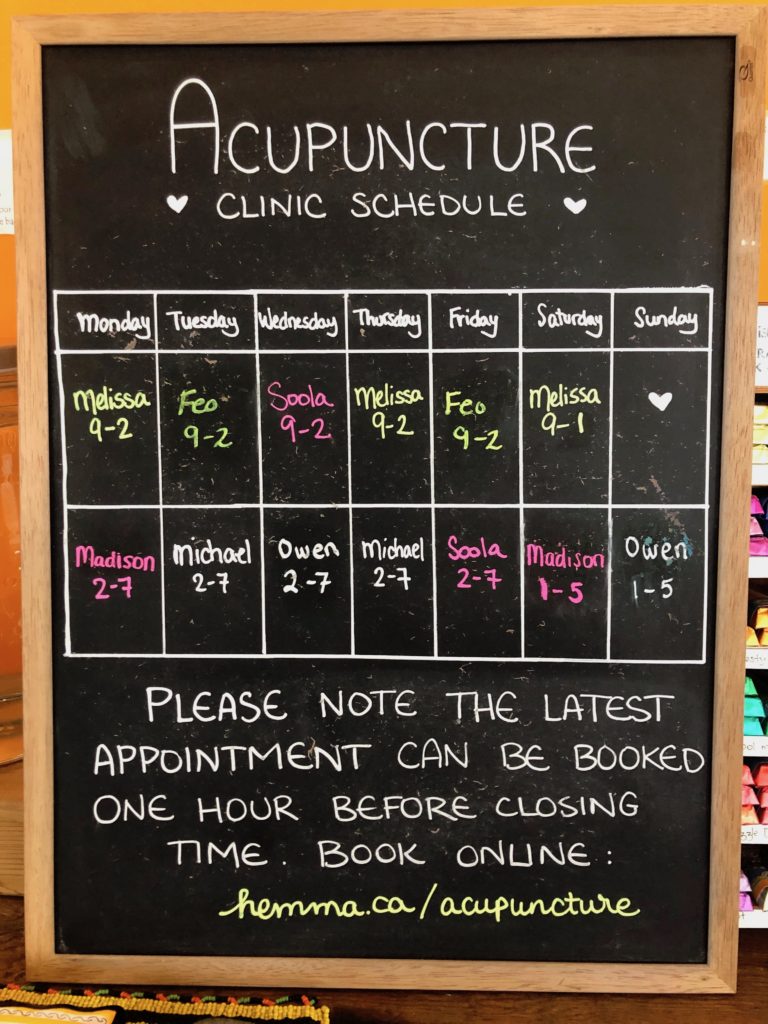 ACUPUNCTURE
CLINIC SCHEDULE
Monday Tuesday Wednesday Thursday Friday Saturday Sunday
Melissa Feo Soola Melissa Feo Melissa
9-2 9-2 9-2 9-2 9-2 9-1
Madison Michael Owen Michael Soola Madison Owen
2-7 2-7 2-7 2-7 2-7 1-5 1-5
PLEASE NOTE THE LATEST
APPOINTMENT CAN BE BOOKED
ONE HOUR BEFORE CLOSING
TIME. BOOK ONLINE:
hemma.ca/acupuncture